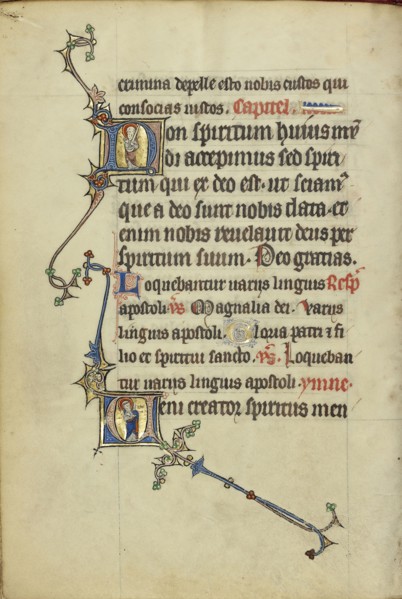 crimina depelle esto nobis custos qui
consocias iustos. Capitel.
Non spiritum huius mū
di accepimus sed spiri
tum qui ex deo est. ut sciamꝰ
que a deo sunt nobis data. et
enim nobis revelavit deus per
spiritum suum. Deo gratias.
Loquebantur variis linguis Resp̄
apostoli. V̄s Magnalia dei. Variis
linguis apostoli. Gloria patri et fi
lio et spiritui sancto. V̄s. Loqueban
tur variis linguis apostoli. ymne.
Veni creator spiritus men